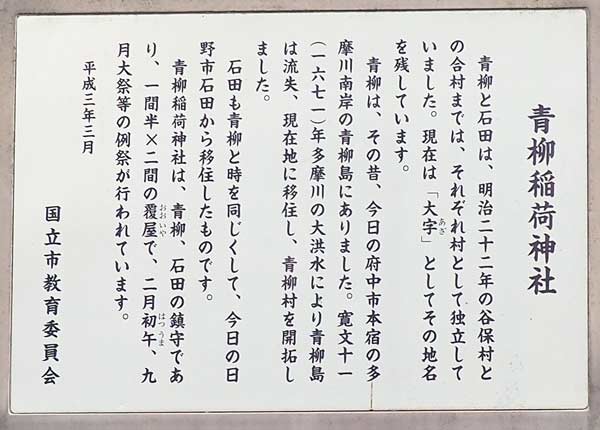 青柳稲荷神社
青柳と石田は、明治二十二年の谷保村と
の合村までは、それぞれ村として独立して
いました。現在は「大字」としてその地名
あざ
を残しています。
青柳は、その昔、今日の府中市本宿の多
摩川南岸の青柳島にありました。寛文十一
(一六七一)年多摩川の大洪水により青柳島
は流失、現在地に移住し、青柳村を開拓し
ました。
石田も青柳と時を同じくして、今日の日
野市石田から移住したものです。
青柳稲荷神社は、青柳、石田の鎮守であ
り、一間半×二間の覆屋で、二月初午、九
おおいや
はつうま
月大祭等の例祭が行われています。
平成三年三月
国立市教育委員会